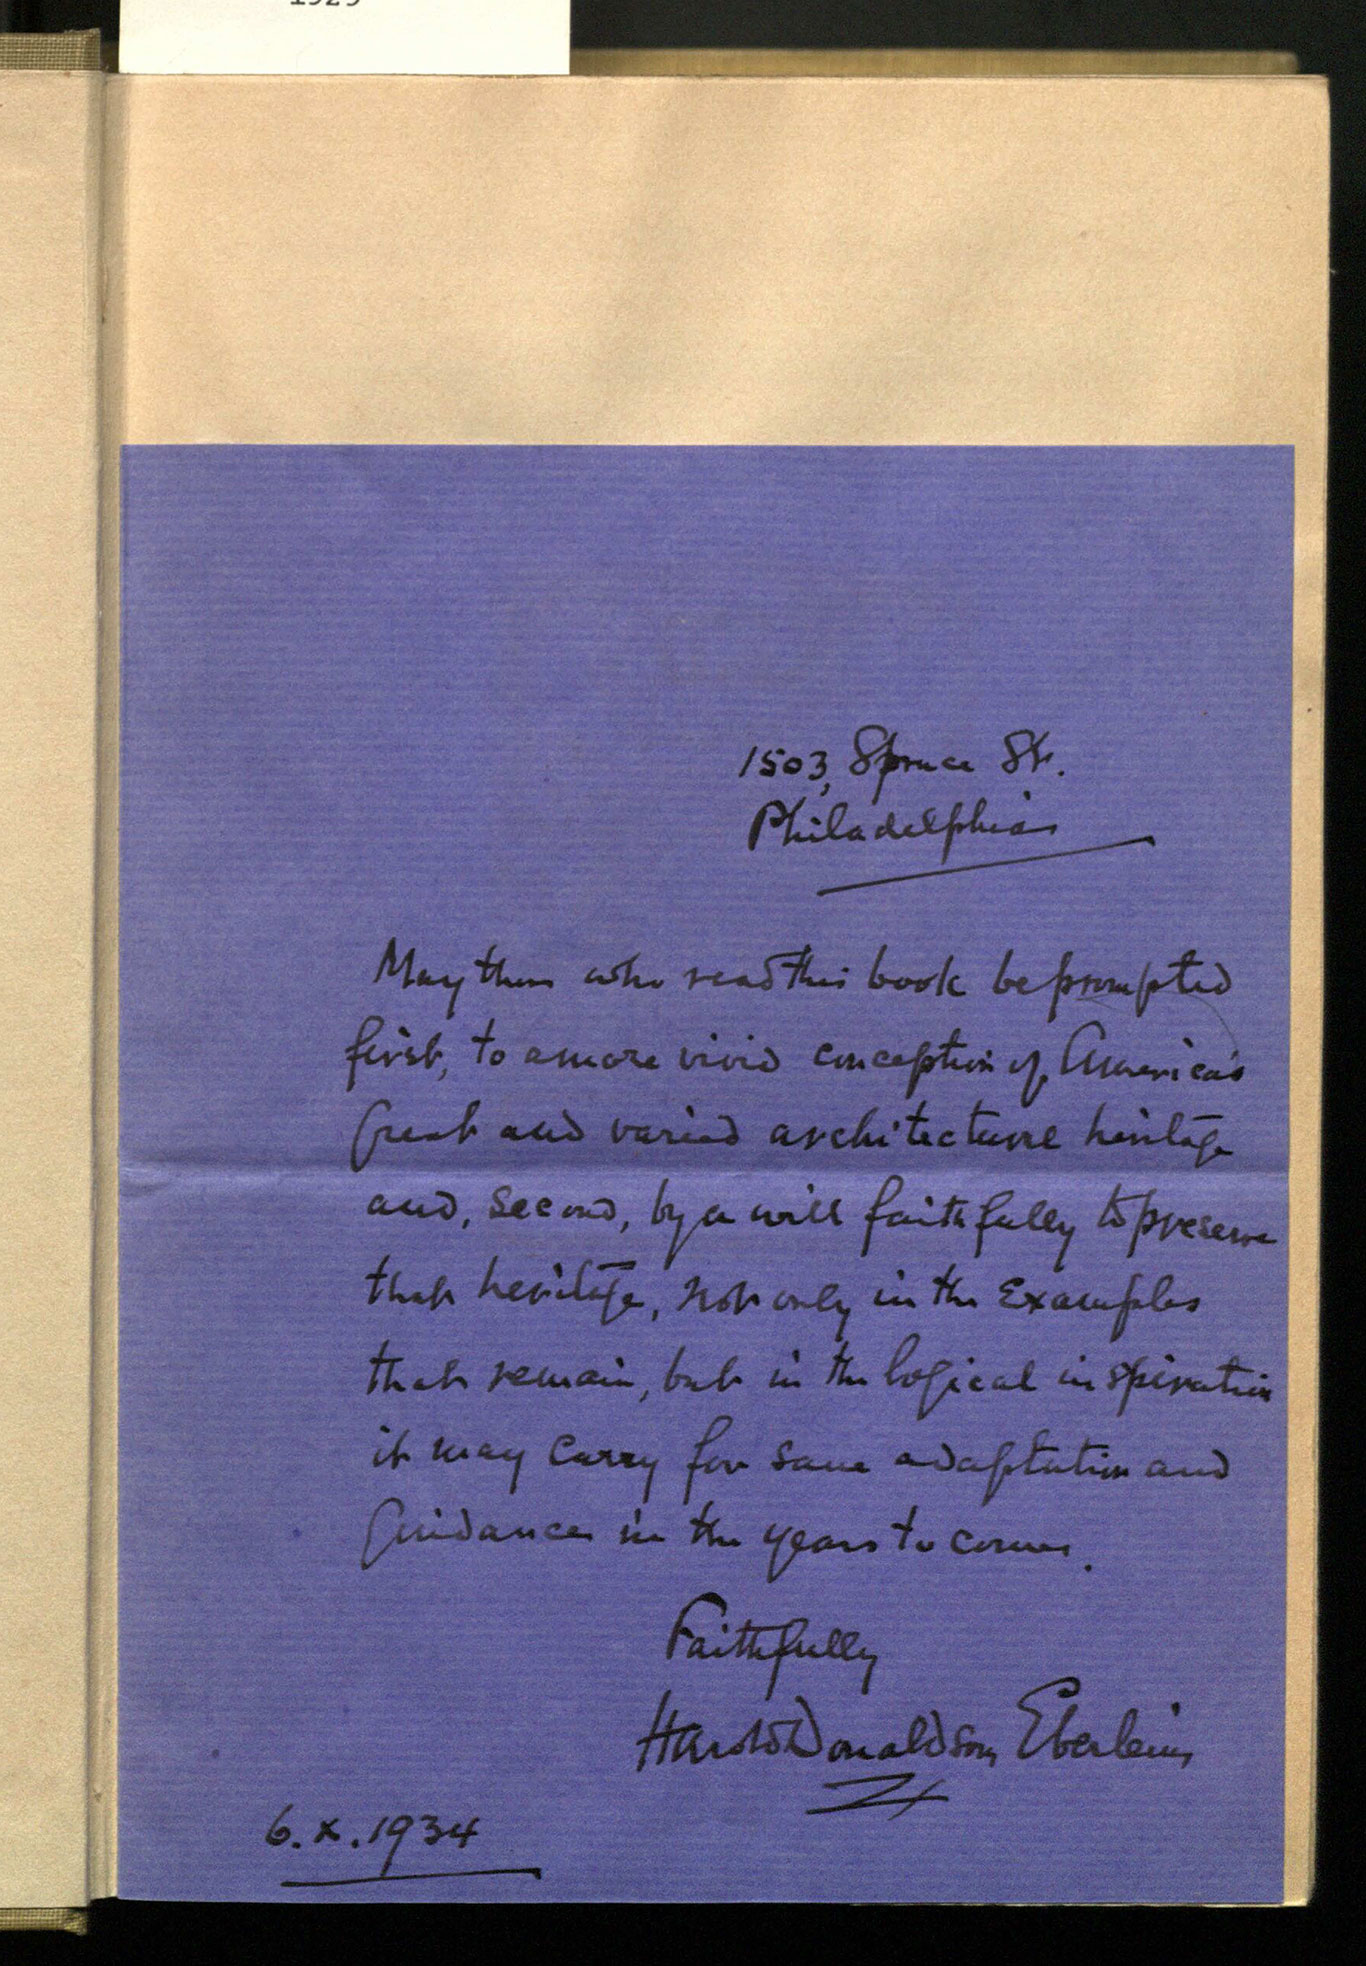 1503, Spruce St.
Philadelphia
May those who read this book be prompted
first, to a more vivid conception of America's
great and varied architectural heritage
and, second, by a will faithfully to preserve
that heritage, not only in the examples
that remain, but in the logical inspiration
it may carry for sane adaptation and
guidance in the years to come.
Faithfully
Harold Donaldson Eberlein
6.X.1934